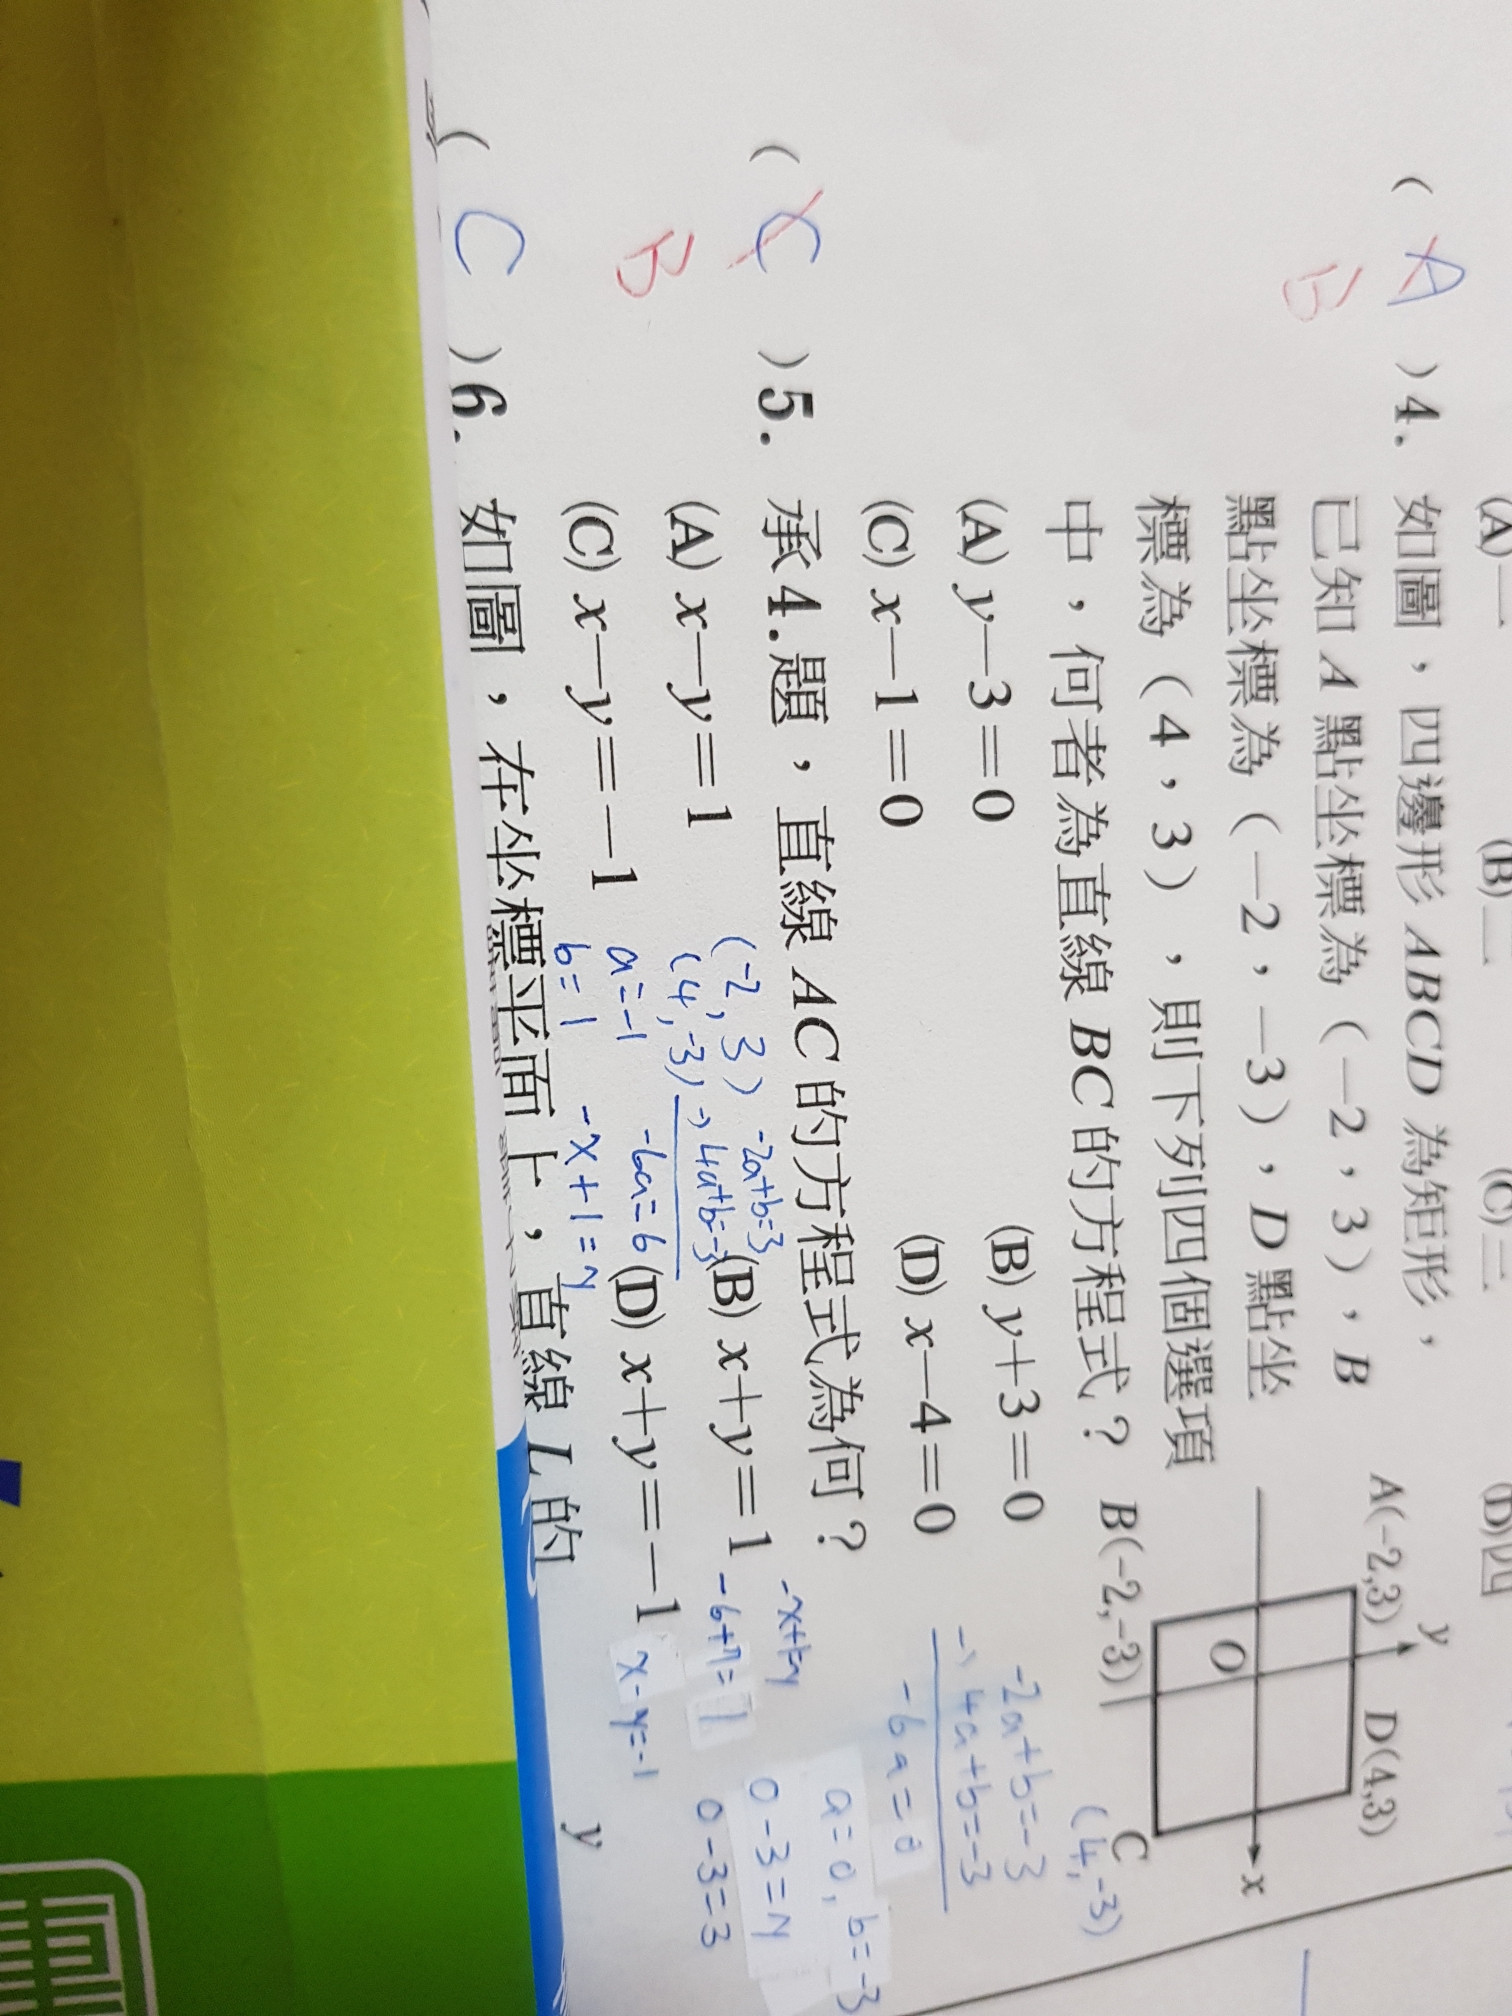 (A)一 (B)二 (C)三 (D)四
( A )4. 如圖，四邊形 ABCD 為矩形，
B
已知 A 點坐標為(-2,3)，B
點坐標為(-2,-3)，D 點坐
標為(4,3)，則下列四個選項
中，何者為直線 BC 的方程式？
(A) y-3=0 (B) y+3=0
(C) x-1=0 (D) x-4=0
A(-2,3)
y
D(4,3)
O
x
B(-2,-3)
C
(4,-3)
-2a+b=-3
-) 4a+b=-3
-6a=0
a=0, b=-3
0-3=y
0-3=3
( C )5. 承4.題，直線 AC 的方程式為何？
B
(A) x-y=1 (B) x+y=1
(C) x-y=-1 (D) x+y=-1
(-2,3) -2a+b=3
(4,-3) -) 4a+b=-3
a=-1 -6a=6
b=1 -x+1=y
-x+1=y
x-y=-1
( C )6. 如圖，在坐標平面上，直線 L 的
y